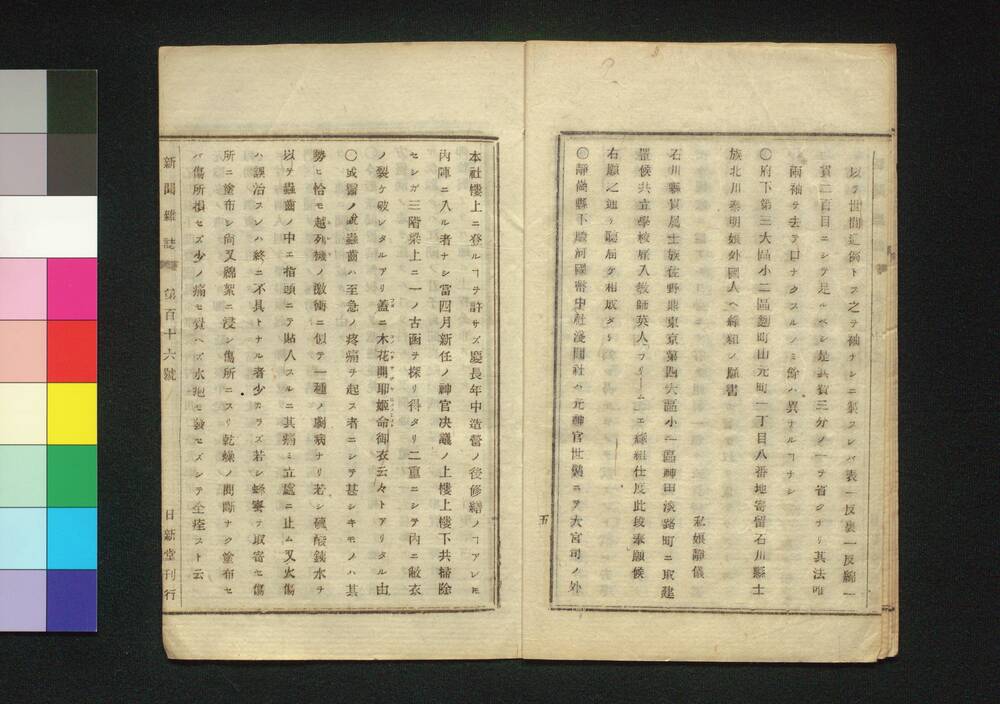 以テ世間通例トス之ヲ袖ナシニ製スレバ表一反裏一反綿一
貫二百目ニシテ足ルベシ是ニ貲三分ノ一ヲ省クナリ其法唯
兩袖ヲ去テ口ナクスルノミ餘ハ異ナルヿナシ
〇府下第三大區小二區麴町山元町一丁目八番地寄留石川縣士
族北川泰明娘外國人ヘ縁組ノ願書
私娘靜儀
石川縣貫屬士族佐野鼎東京第四大區小一區神田淡路町ニ取建
置候共立學校雇入敎師英人フリームヱ縁組仕度此段奉願候
右願之通リ聽屆ケ相成タリ
〇靜岡縣下駿河國幣中社淺間社ハ元神官世襲ニテ大宮司ノ外
五
本社樓上ニ登ルヿヲ許サズ慶長年中造營ノ後修繕ノヿアレ𪜈
内陣ニ入ル者ナシ當四月新任ノ神官決議ノ上樓上樓下共掃除
セシガ三階梁上ニ一ノ古函ヲ探リ得タリ二重ニシテ内ニ敝衣
ノ裂ケ破レタルアリ蓋ニ木花開耶姬命御衣云々トアリタル由
〇或醫ノ說蟲齒ハ至急ノ疼痛ヲ起ス者ニシテ甚シキモノハ其
勢ヒ恰モ越列機ノ激衝ニ似テ一種ノ劇病ナリ若シ硫酸鉄水ヲ
以テ蟲齒ノ中エ指頭ニテ貼入スルニ其痛ミ立處ニ止ム又火傷
ハ誤治スレハ終ニ不具トナル者少カラズ若シ蜂蜜ヲ取寄セ傷
所ニ塗布シ尙又綿絮ニ浸シ傷所ニスリ乾燥ノ間斷ナク塗布セ
バ傷所損セズ少ノ痛モ覺ヘズ水疱モ發セズシテ全痊スト云
新聞雜誌 第百十六號 日新堂刊行